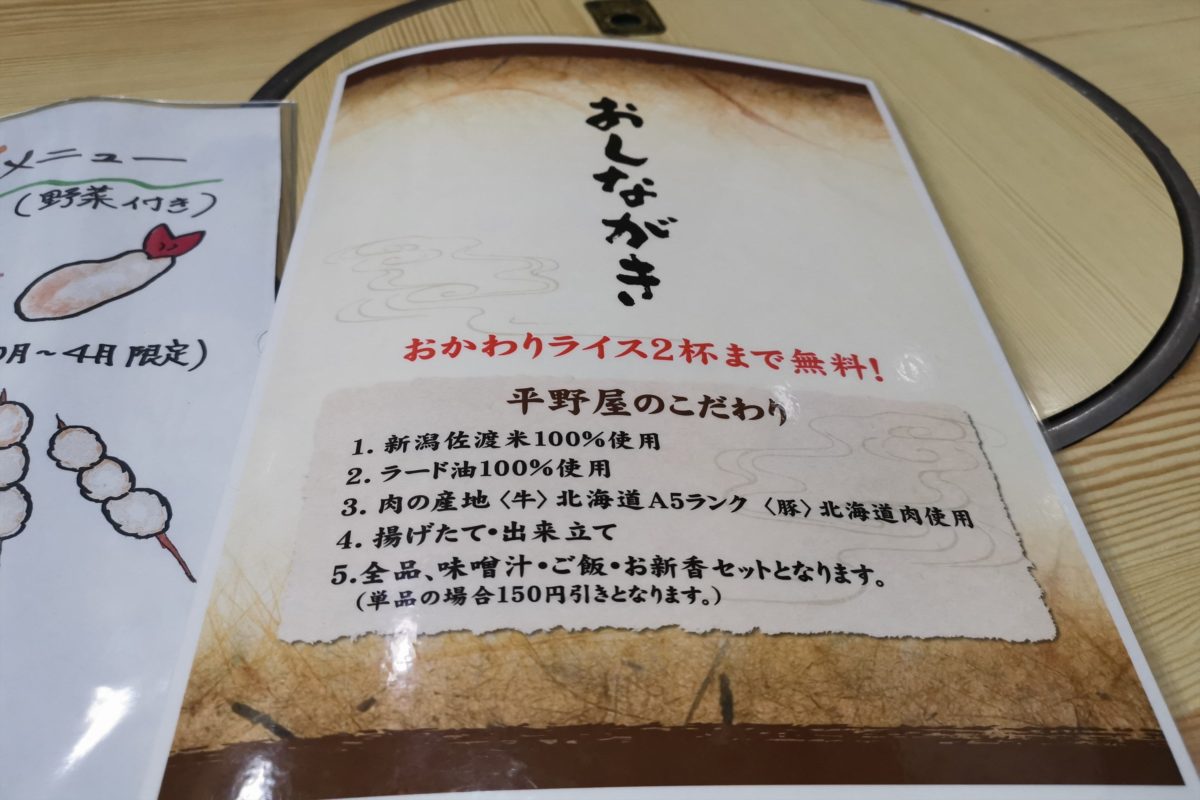 メニュー
(野菜付き)
月～4月限定)
おしながき
おかわりライス2杯まで無料!
平野屋のこだわり
1. 新潟佐渡米100%使用
2. ラード油100%使用
3. 肉の産地〈牛〉北海道A5ランク〈豚〉北海道肉使用
4. 揚げたて・出来立て
5. 全品、味噌汁・ご飯・お新香セットとなります。
(単品の場合150円引きとなります。)